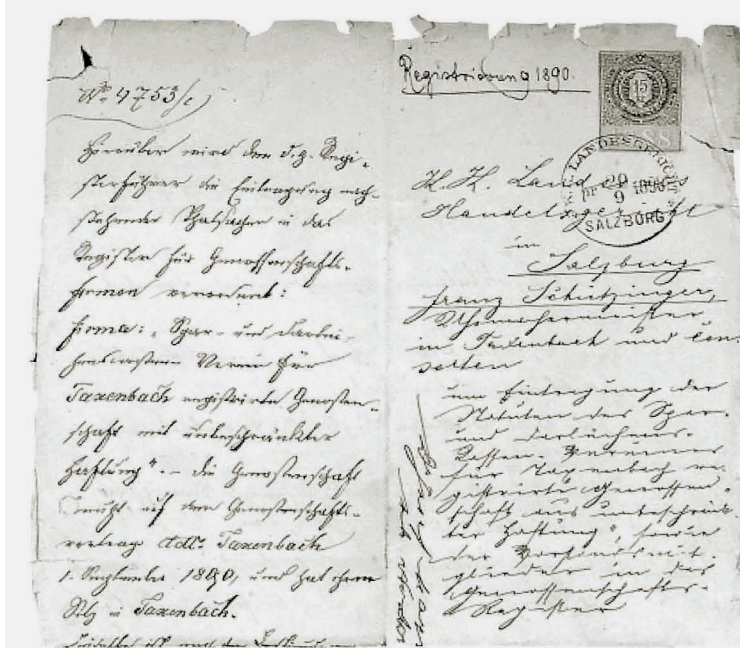 No 4753/c
Hierüber wird dem d.g. Regi-
sterführer die Eintragung nach-
stehender Thatsachen in das
Register für Genossenschafts-
firmen verordnet:
Firma: „Spar- und Darlei-
henscassen Verein für
Taxenbach registrirte Genossen-
schaft mit unbeschränkter
Haftung“. – die Genossenschaft
beruht auf dem Genossenschafts-
vertrag ddto Taxenbach
1. September 1890, und hat ihren
Sitz in Taxenbach.
Registrierung 1890.
15
K. K. LANDESGERICHT
20 9 1890
SALZBURG
K. K. Landes als
Handelsgericht
in
Salzburg
Franz Schützinger,
Uhrmachermeister
in Taxenbach und Con-
sorten
um Eintragung der
Statuten des Spar-
und Darlehens-
Cassen-Vereines
für Taxenbach re-
gistrirte Genossen-
schaft mit unbeschränk-
ter Haftung“, sowie
der Vorstandsmit-
glieder in das
Genossenschafts-
Register